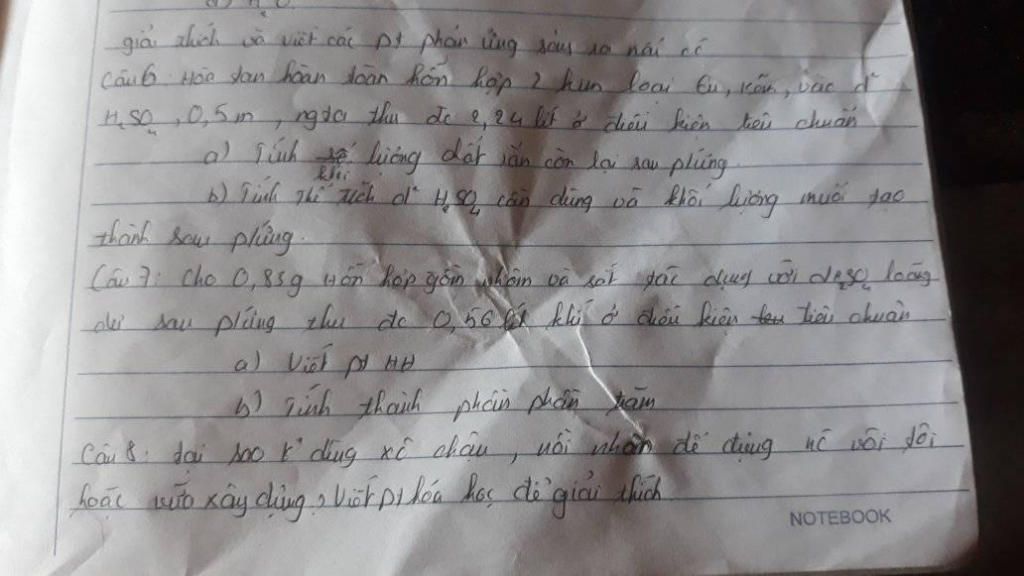 giải thích và viết các pt phản ứng sảy ra nếu có
Câu 6: Hòa tan hoàn toàn hỗn hợp 2 kim loại Cu, kẽm, vào d²
H₂SO₄, 0,5m, người thu đc 2,24 lít ở điều kiện tiêu chuẩn
a) Tính khối lượng chất rắn còn lại sau pứng
b) Tính thể tích d² H₂SO₄ cần dùng và khối lượng muối tạo
thành sau pứng.
Câu 7: Cho 0,83g Hỗn hợp gồm nhôm và sắt tác dụng với H₂SO₄ loãng
dư sau pứng thu đc 0,56 lít khí ở điều kiện tiêu chuẩn
a) Viết pt HH
b) Tính thành phần phần trăm
Câu 8: tại sao k dùng xô chậu, nồi nhôm để đựng nc vôi tôi
hoặc vữa xây dựng? Viết pt hóa học để giải thích
NOTEBOOK